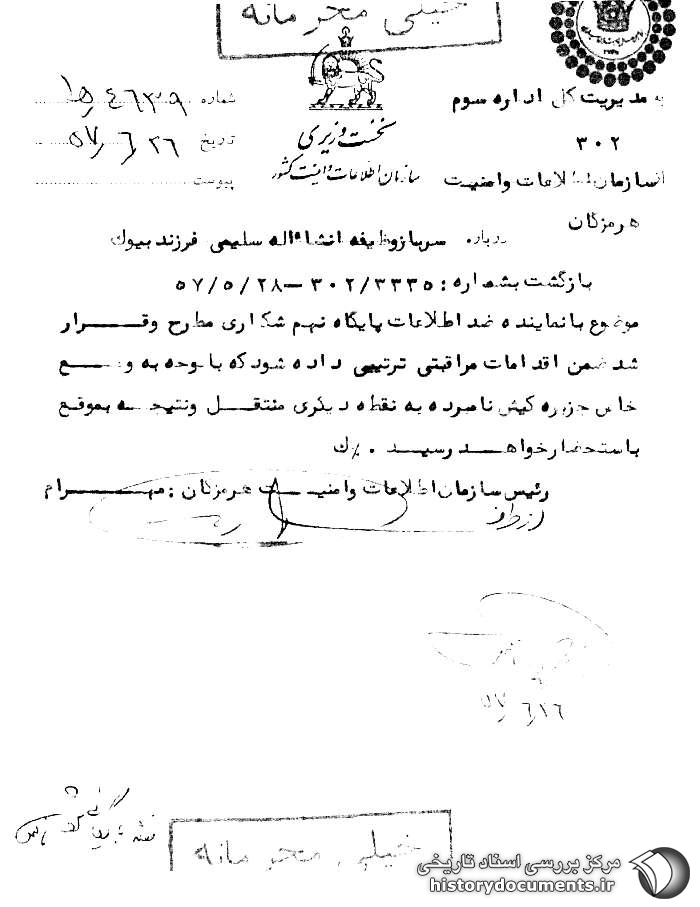 خیلی محرمانه
نخست وزیری
سازمان اطلاعات و امنیت کشور
شماره ۴۶۳۹
تاریخ ۵۷/۶/۲۶
پیوست
به مدیریت کل اداره سوم
۳۰۲
از سازمان اطلاعات و امنیت
هرمزگان
درباره سرباز وظیفه انشاءاله سلیمی فرزند بیوک
بازگشت بشماره : ۳۰۲/۳۳۳۵ – ۵۷/۵/۲۸
موضوع با نماینده ضد اطلاعات پایگاه نهم شکاری مطرح و قــرار
شد ضمن اقدامات مراقبتی ترتیبی داده شود که با توجه به وضــع
خاص جزیره کیش نامبرده به نقطه دیگری منتقــل و نتیجــه بموقع
باستحضار خواهــد رسیــد . ک
رئیس سازمان اطلاعات و امنیــت هرمزگان : مهــرام
از طرف
۵۷/۶/۲۶
خیلی محرمانه
مرکز بررسی اسناد تاریخی
historydocuments.ir